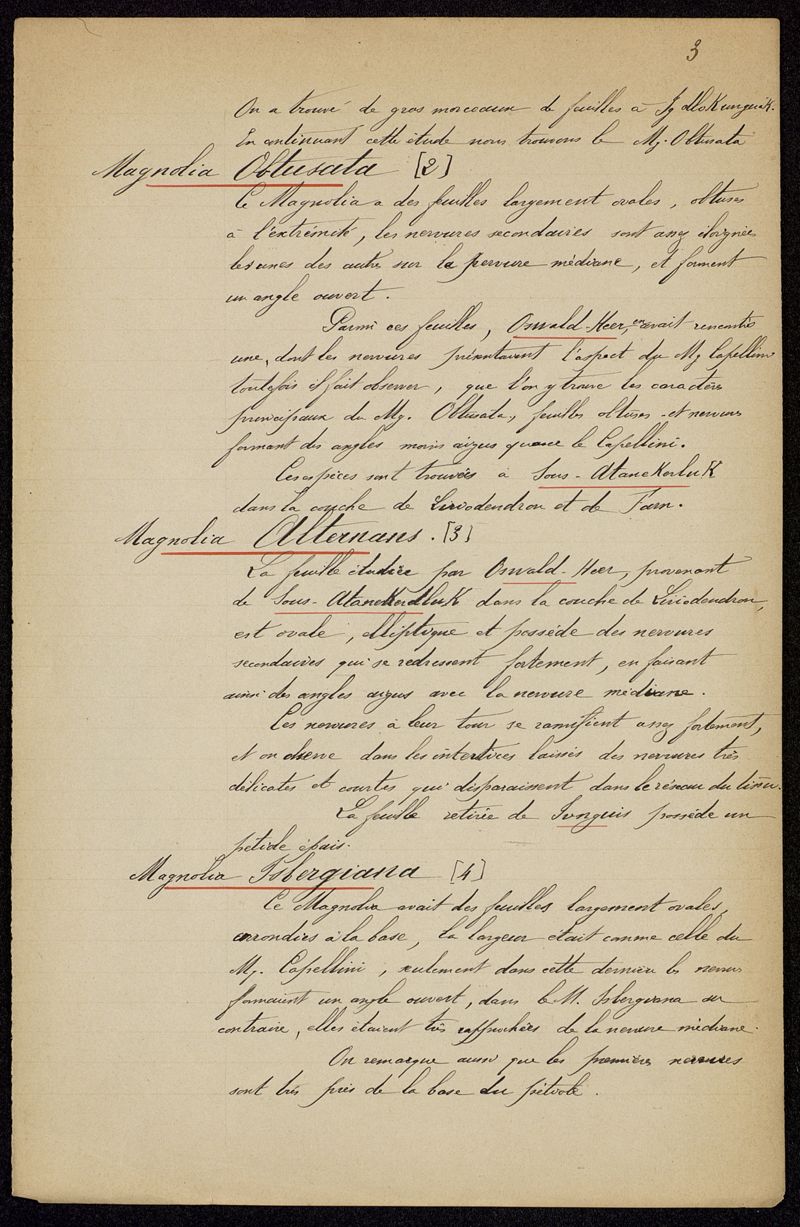 3
On a trouvé de gros morceaux de feuilles à
En continuant cette étude nous trouvons le Mg. Obtusata
Magnolia Obtusata [2]
Ce Magnolia a des feuilles largement ovales, obtuses
à l'extrémité, les nervures secondaires sont assez éloignées
les unes des autres sur la nervure médiane, et forment
un angle ouvert.
Parmi ces feuilles, Oswald-Heer, en avait rencontré
une, dont les nervures présentaient l'aspect du Mg Capellini
toutefois il fait observer, que l'on y trouve les caractères
principaux du Mg. Obtusata, feuilles obtuses et nervures
formant des angles moins aigus que le Capellini.
Ces espèces sont trouvées à Sous-Atanekerluk
dans la couche de Liriodendron et de Farn.
Magnolia Alternans. [3]
La feuille étudiée par Oswald-Heer, provenant
de Sous-Atanekerdluk dans la couche de Liriodendron,
est ovale, elliptique et possède des nervures
secondaires qui se redressent fortement, en faisant
ainsi des angles aigus avec la nervure médiane.
Ces nervures à leur tour se ramifient assez fortement,
et on observe dans les interstices laissés des nervures très
délicates et courtes qui disparaissent dans le réseau du tissu.
La feuille retirée de possède un
pétiole épais.
Magnolia Isbergiana [4]
Ce Magnolia avait des feuilles largement ovales,
arrondies à la base, la largeur était comme celle du
Mg. Capellini, seulement dans cette dernière les nervures
formaient un angle ouvert, dans le M. Isbergiana au
contraire, elles étaient très rapprochées de la nervure médiane.
On remarque aussi que les premières nervures
sont très près de la base du pétiole.